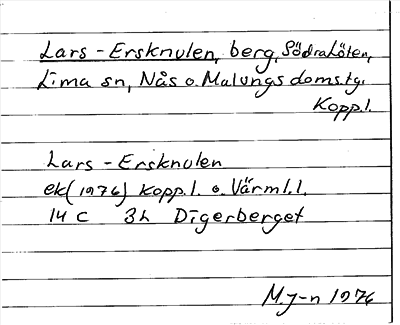 Lars-Ersknulen, berg, Södra Löten,
Lima sn, Nås o. Malungs doms.tg.
Kopp.l.
Lars-Ersknulen
ek (1976) Kopp.l. o. Värml.l.
14 C 3h Digerberget
M.J-n 1976